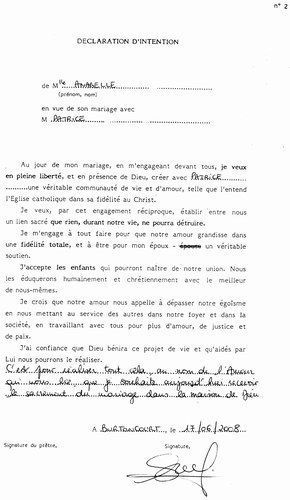 n° 2
DECLARATION D'INTENTION
de M lle ANABELLE
(prénom, nom)
en vue de son mariage avec
M PATRICE
Au jour de mon mariage, en m'engageant devant tous, je veux
en pleine liberté, et en présence de Dieu, créer avec PATRICE
..........une véritable communauté de vie et d'amour, telle que l'entend
l'Eglise catholique dans sa fidélité au Christ.
Je veux, par cet engagement réciproque, établir entre nous
un lien sacré que rien, durant notre vie, ne pourra détruire.
Je m'engage à tout faire pour que notre amour grandisse dans
une fidélité totale, et à être pour mon époux - épouse un véritable
soutien.
J'accepte les enfants qui pourront naître de notre union. Nous
les éduquerons humainement et chrétiennement avec le meilleur
de nous-mêmes.
Je crois que notre amour nous appelle à dépasser notre égoïsme
en nous mettant au service des autres dans notre foyer et dans la
société, en travaillant avec tous pour plus d'amour, de justice et
de paix.
J'ai confiance que Dieu bénira ce projet de vie et qu'aidés par
Lui nous pourrons le réaliser.
C'est pour réaliser tout cela, au nom de l'Amour
qui nous lie que je souhaite aujourd'hui recevoir
le sacrement du mariage dans la maison de Dieu
A BURTONCOURT, le 17/06/2008
Signature du prêtre, Signature,